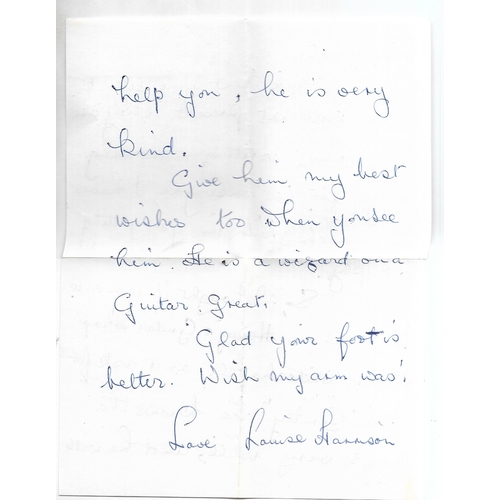 help you, he is very
kind.
Give him my best
wishes too when you see
him. He is a wizard on a
Guitar. Great.
Glad your foot is
better. Wish my arm was!
Love Louise Harrison